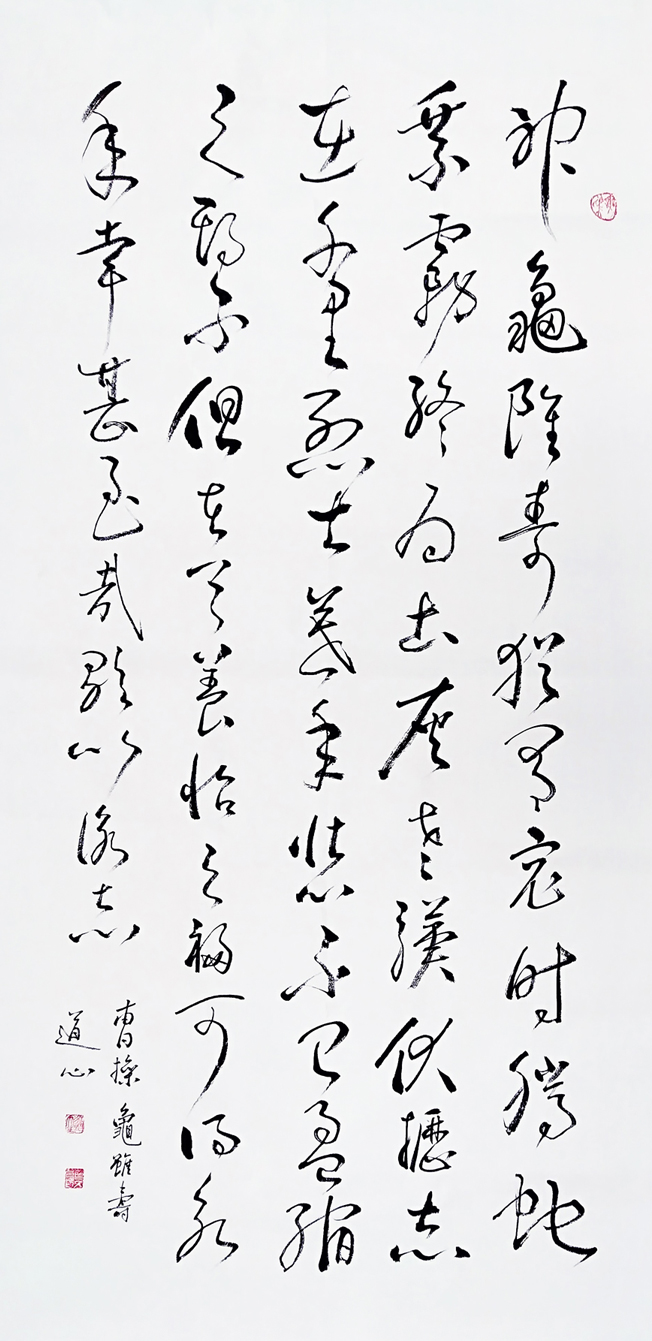 神龜雖壽猶有竟時騰蛇
乘霧終為土灰老驥伏櫪志
在千里烈士暮年壯心不已盈縮
之期不但在天養怡之福可得永
年幸甚至哉歌以詠志
曹操 龜雖壽
道心